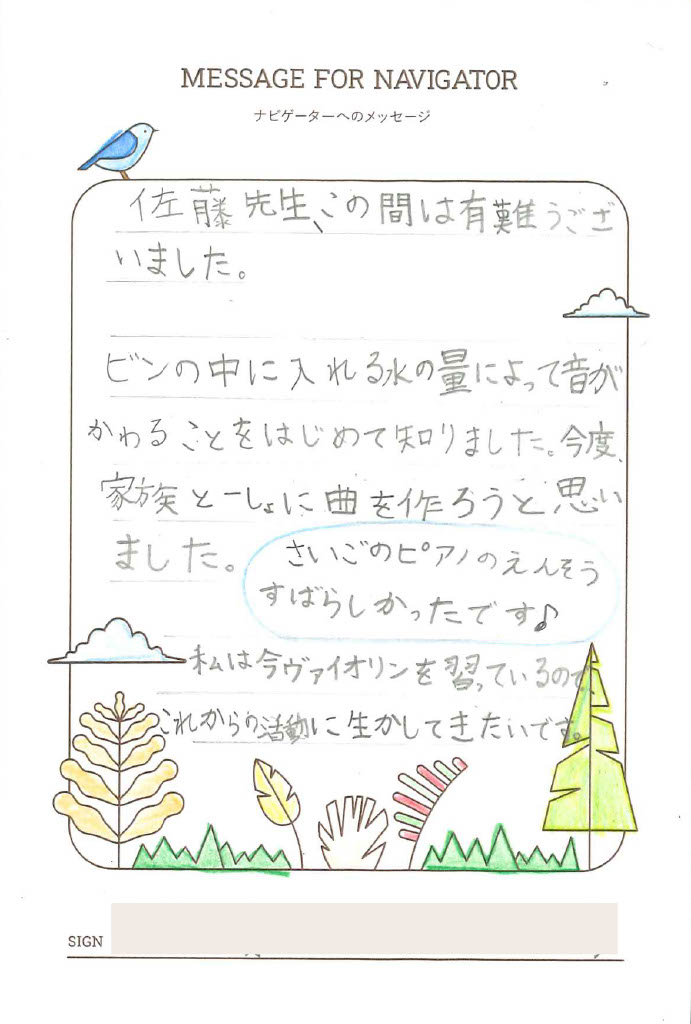 MESSAGE FOR NAVIGATOR
ナビゲーターへのメッセージ
佐藤先生、この間は有難うござ
いました。
ビンの中に入れる水の量によって音が
かわることをはじめて知りました。今度、
家族と一しょに曲を作ろうと思い
ました。
さいごのピアノのえんそう
すばらしかったです♪
私は今ヴァイオリンを習っているので、
これからの活動に生かしてきたいです。
SIGN